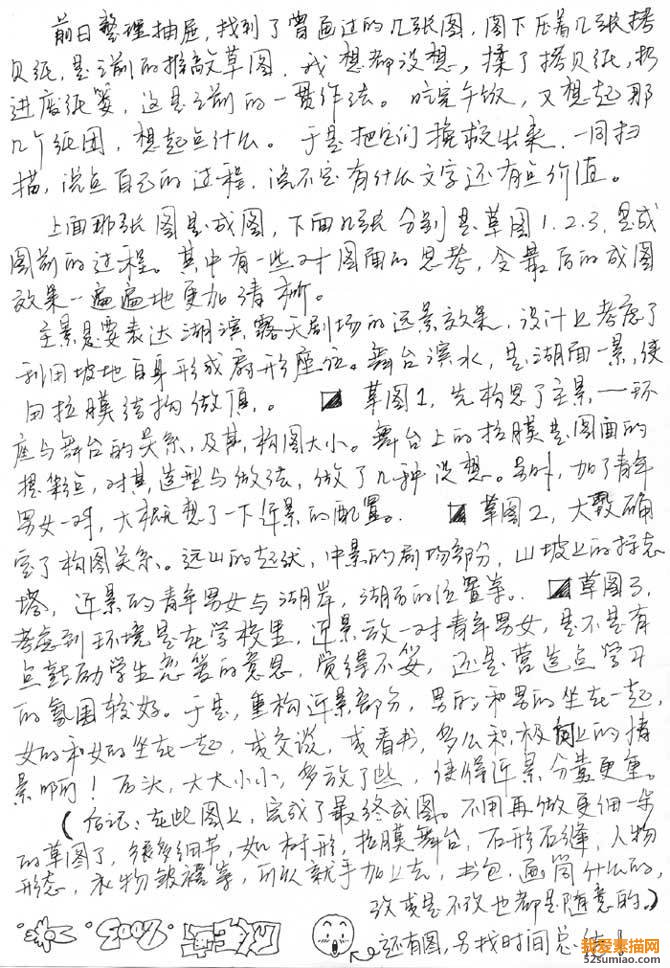 前日整理抽屉，找到了曾画过的几张图，图下压着几张拷
贝纸，是之前的推敲草图，我想都没想，揉了拷贝纸，扔
进废纸篓，这是之前的一贯作法。吃完午饭，又想起那
几个纸团，想起点什么。于是把它们挽救出来，一同扫
描，说点自己的过程，说不定有什么文字还有点价值。
上面那张图是成图，下面几张分别是草图1.2.3，是成
图前的过程。其中有一些对图面的思考，令最后的成图
效果一遍遍地更加清晰。
主景是要表达湖滨露天剧场的远景效果，设计上考虑了
利用坡地自身形成扇形座位。舞台滨水，是湖面一景，使
用拉膜结构做顶。 草图1，先构思了主景，一环
座与舞台的关系，及其构图大小。舞台上的拉膜是图面的
提彩点，对其造型与做法，做了几种设想。另外，加了青年
男女一对，大概想了一下近景的配置。 草图2，大致确
定了构图关系。远山的起伏，中景的剧场部分，山坡上的标志
塔，近景的青年男女与湖岸，湖石的位置等。 草图3，
考虑到环境是在学校里，近景放一对青年男女，是不是有
点鼓励学生恋爱的意思，觉得不妥，还是营造点学习
的氛围较好。于是，重构近景部分，男的和男的坐在一起，
女的和女的坐在一起，或交谈，或看书，多么积极向上的情
景啊！石头，大大小小，多放了些，使得近景分量更重。
（后记：在此图上，完成了最终成图。不用再做更细一步
的草图了，很多细节，如树形，拉膜舞台，石形石缝，人物
形态，衣物皱褶等，可以就手加上去，书包，画筒什么的，
改或是不改也都是随意的。）
2003
还有图，另找时间总结！
我爱素描网
52sumiao.com